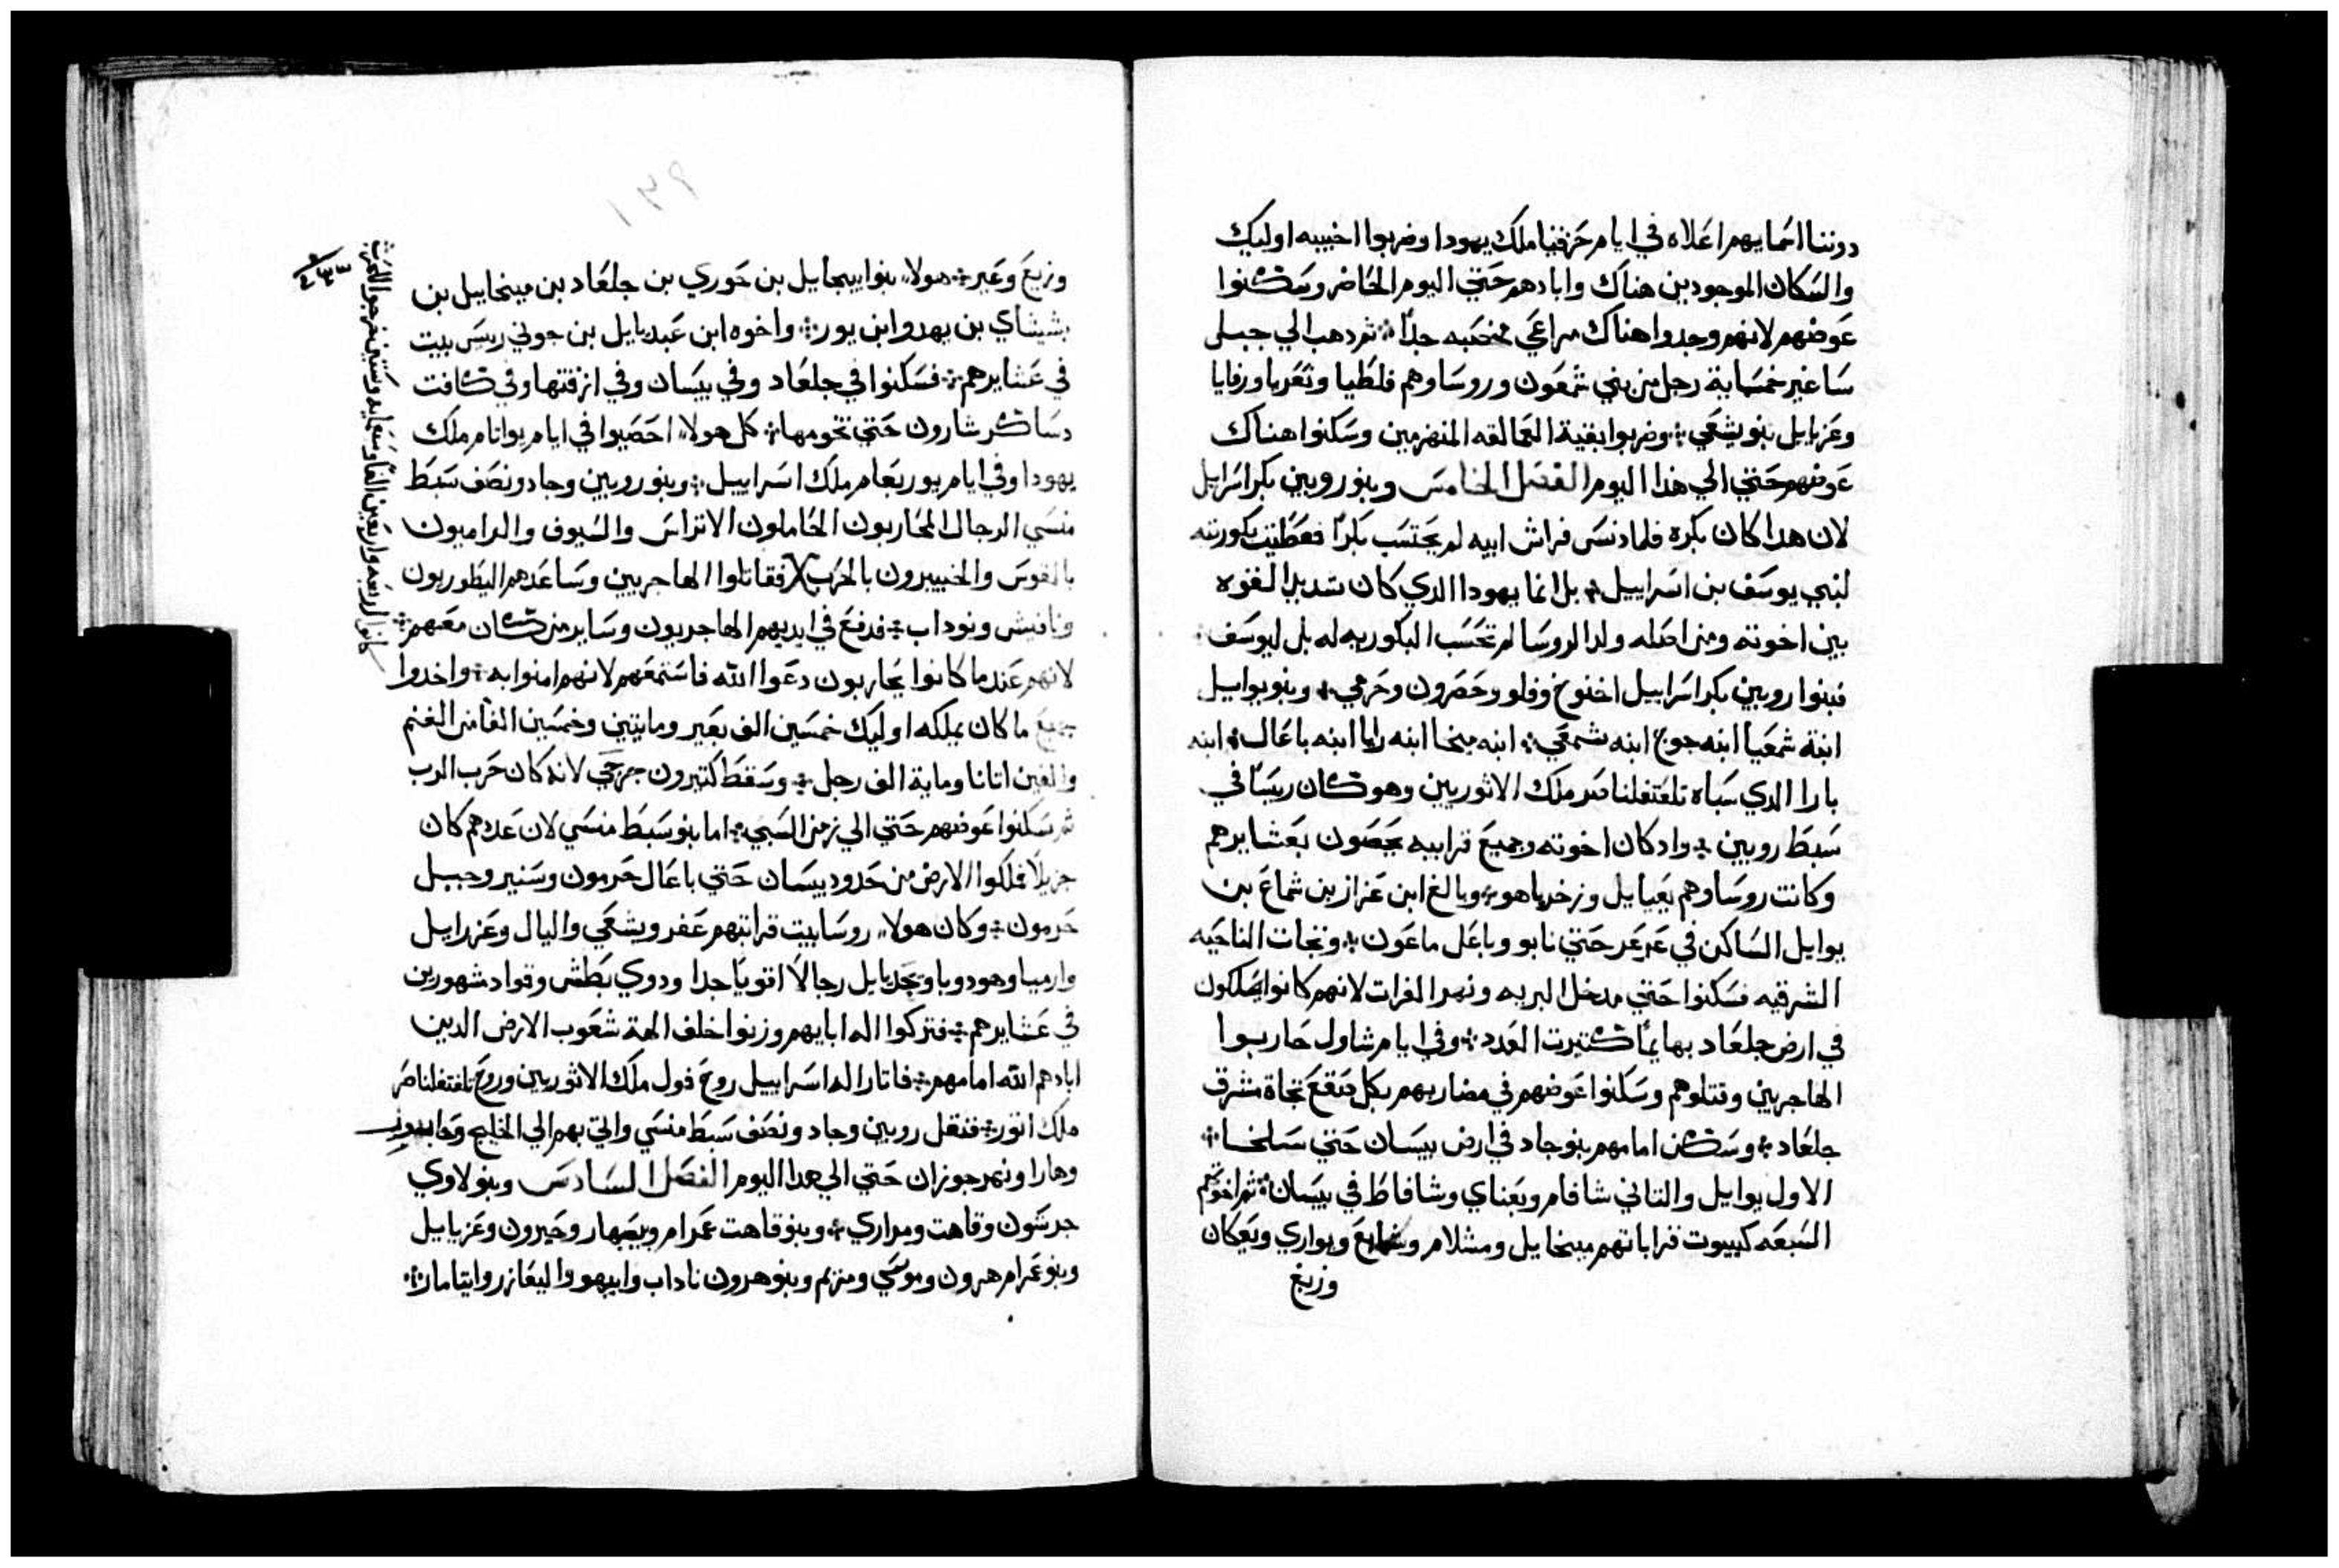 دوننا اسمايهم اعلاه في ايام حزقيا ملك يهودا وضربوا اخبيه اوليك
والسكان الموجودين هناك وابادهم حتي اليوم الحاضر وسكنوا
عوضهم لانهم وجدوا هناك مراعي مخصبه جدًا ثم دهب الي جبل
ساغير خمسماية رجل من بني شمعون وروساوهم فلطيا ونعريا ورفايا
وعزيايل بنو يشعي وضربوا بقية العمالقه المنهزمين وسكنوا هناك
عوضهم حتي الي هذا اليوم الفصل الخامس وبنو روبين بكر اسراييل
لان هدا كان بكره فلما دنس فراش ابيه لم يحتسب بكرًا فعطيت بكوريته
لبني يوسف بن اسراييل بل انما يهودا الدي كان شديد القوه
بين اخوته ومن اصله ولد الروسا لم تحسب البكوريه له بل ليوسف
فبنوا روبين بكر اسراييل اخنوخ وفلو وحصرون وحرمي وبنو يواييل
ابنة شمعيا ابنه جوج ابنه شمعي ابنه ميخا ابنه رايا ابنه باعال ابنه
بارا الدي سباه تلغتفلناصر ملك الاثوريين وهو كان ريسًا في
سبط روبين واد كان اخوته وجميع قرابيه يحصون بعشايرهم
وكانت روساوهم يعيايل وزخرياهو وبالغ ابن عزاز بن شماع بن
يوايل الساكن في عرعر حتي نابو وباعل ماعون وتجات الناحيه
الشرقيه فسكنوا حتي مدخل البريه ونهر الفرات لانهم كانوا يملكون
في ارض جلعاد بهايمًا كتيرت العدد وفي ايام شاول حاربوا
الهاجريين وقتلوهم وسكنوا عوضهم في مضاربهم بكل صقع تجاة مشرق
جلعاد وسكن امامهم بنو جاد في ارض بيسان حتي سلخا
الاول يوايل والتاني شافام ويعناي وشافاط في بيسان ثم اخوتهم
السبعه كبيوت قراباتهم ميخايل ومشلام ويواري ويعكان
وزيع
١٣٩
وزيع وعبر هولاء بنوا ابيحايل بن حوري بن جلعاد بن ميخاييل بن
يشيشاي بن يهدوا بن يور واخوه ابن عبديايل بن جوني ريس بيت
في عشايرهم فسكنوا في جلعاد وفي بيسان وفي ازقتها وفي كافت
دساكر شارون حتي تخومها كل هولاء احصيوا في ايام يواتام ملك
يهودا وفي ايام يوربعام ملك اسراييل وبنو روبين وجاد ونصف سبط
منسي الرجال المحاربون الحاملون الاتراس والسيوف والراميون
بالقوس والخبييرون بالحرب فقاتلوا الهاجريين وساعدهم اليطوريون
ونافيش ونوداب فدفع في ايديهم الهاجريون وساير من كان معهم
لانهم عند ما كانوا يحاربون دعوا الله فاستمعهم لانهم امنوا به واخدوا
جميع ما كان يملكه اوليك خمسين الف بعير ومايتين وخمسين الفًا من الغنم
والفين اتانا وماية الف رجل وسقط كتيرون جرحي لانه كان حرب الرب
ثم سكنوا عوضهم حتي الي زمن السبي اما بنو سبط منسي لان عددهم كان
جزيلًا فملكوا الارض من حدود بيسان حتي باعال حرمون وسنير وجبل
حرمون وكان هولاء روسا بيت قراتبهم عفر ويشعي واليال وعزرايل
وارميا وهودويا ويحديايل رجالًا اقويًا جدا ودوي بطش وقواد شهورين
في عشايرهم فتركوا اله ابايهم وزنوا خلف الهة شعوب الارض الدين
ابادهم الله امامهم فاتار اله اسراييل روح فول ملك الاثوريين وروح تلغتفلناصر
ملك اثور فنقل روبين وجاد ونصف سبط منسي واتي بهم الي الخليج وحابور
وهارا ونهر جوزان حتي الي هدا اليوم الفصل السادس وبنو لاوي
جرشون وقاهت ومراري وبنو قاهت عمرام ويصهار وحبرون وعزيايل
وبنو عمرام هرون وموسي ومريم وبنو هرون ناداب وابيهو واليعازر وايتامار
كانوا اربعه واربعين الفًا وسبعمايه وستين خرجوا للحرب